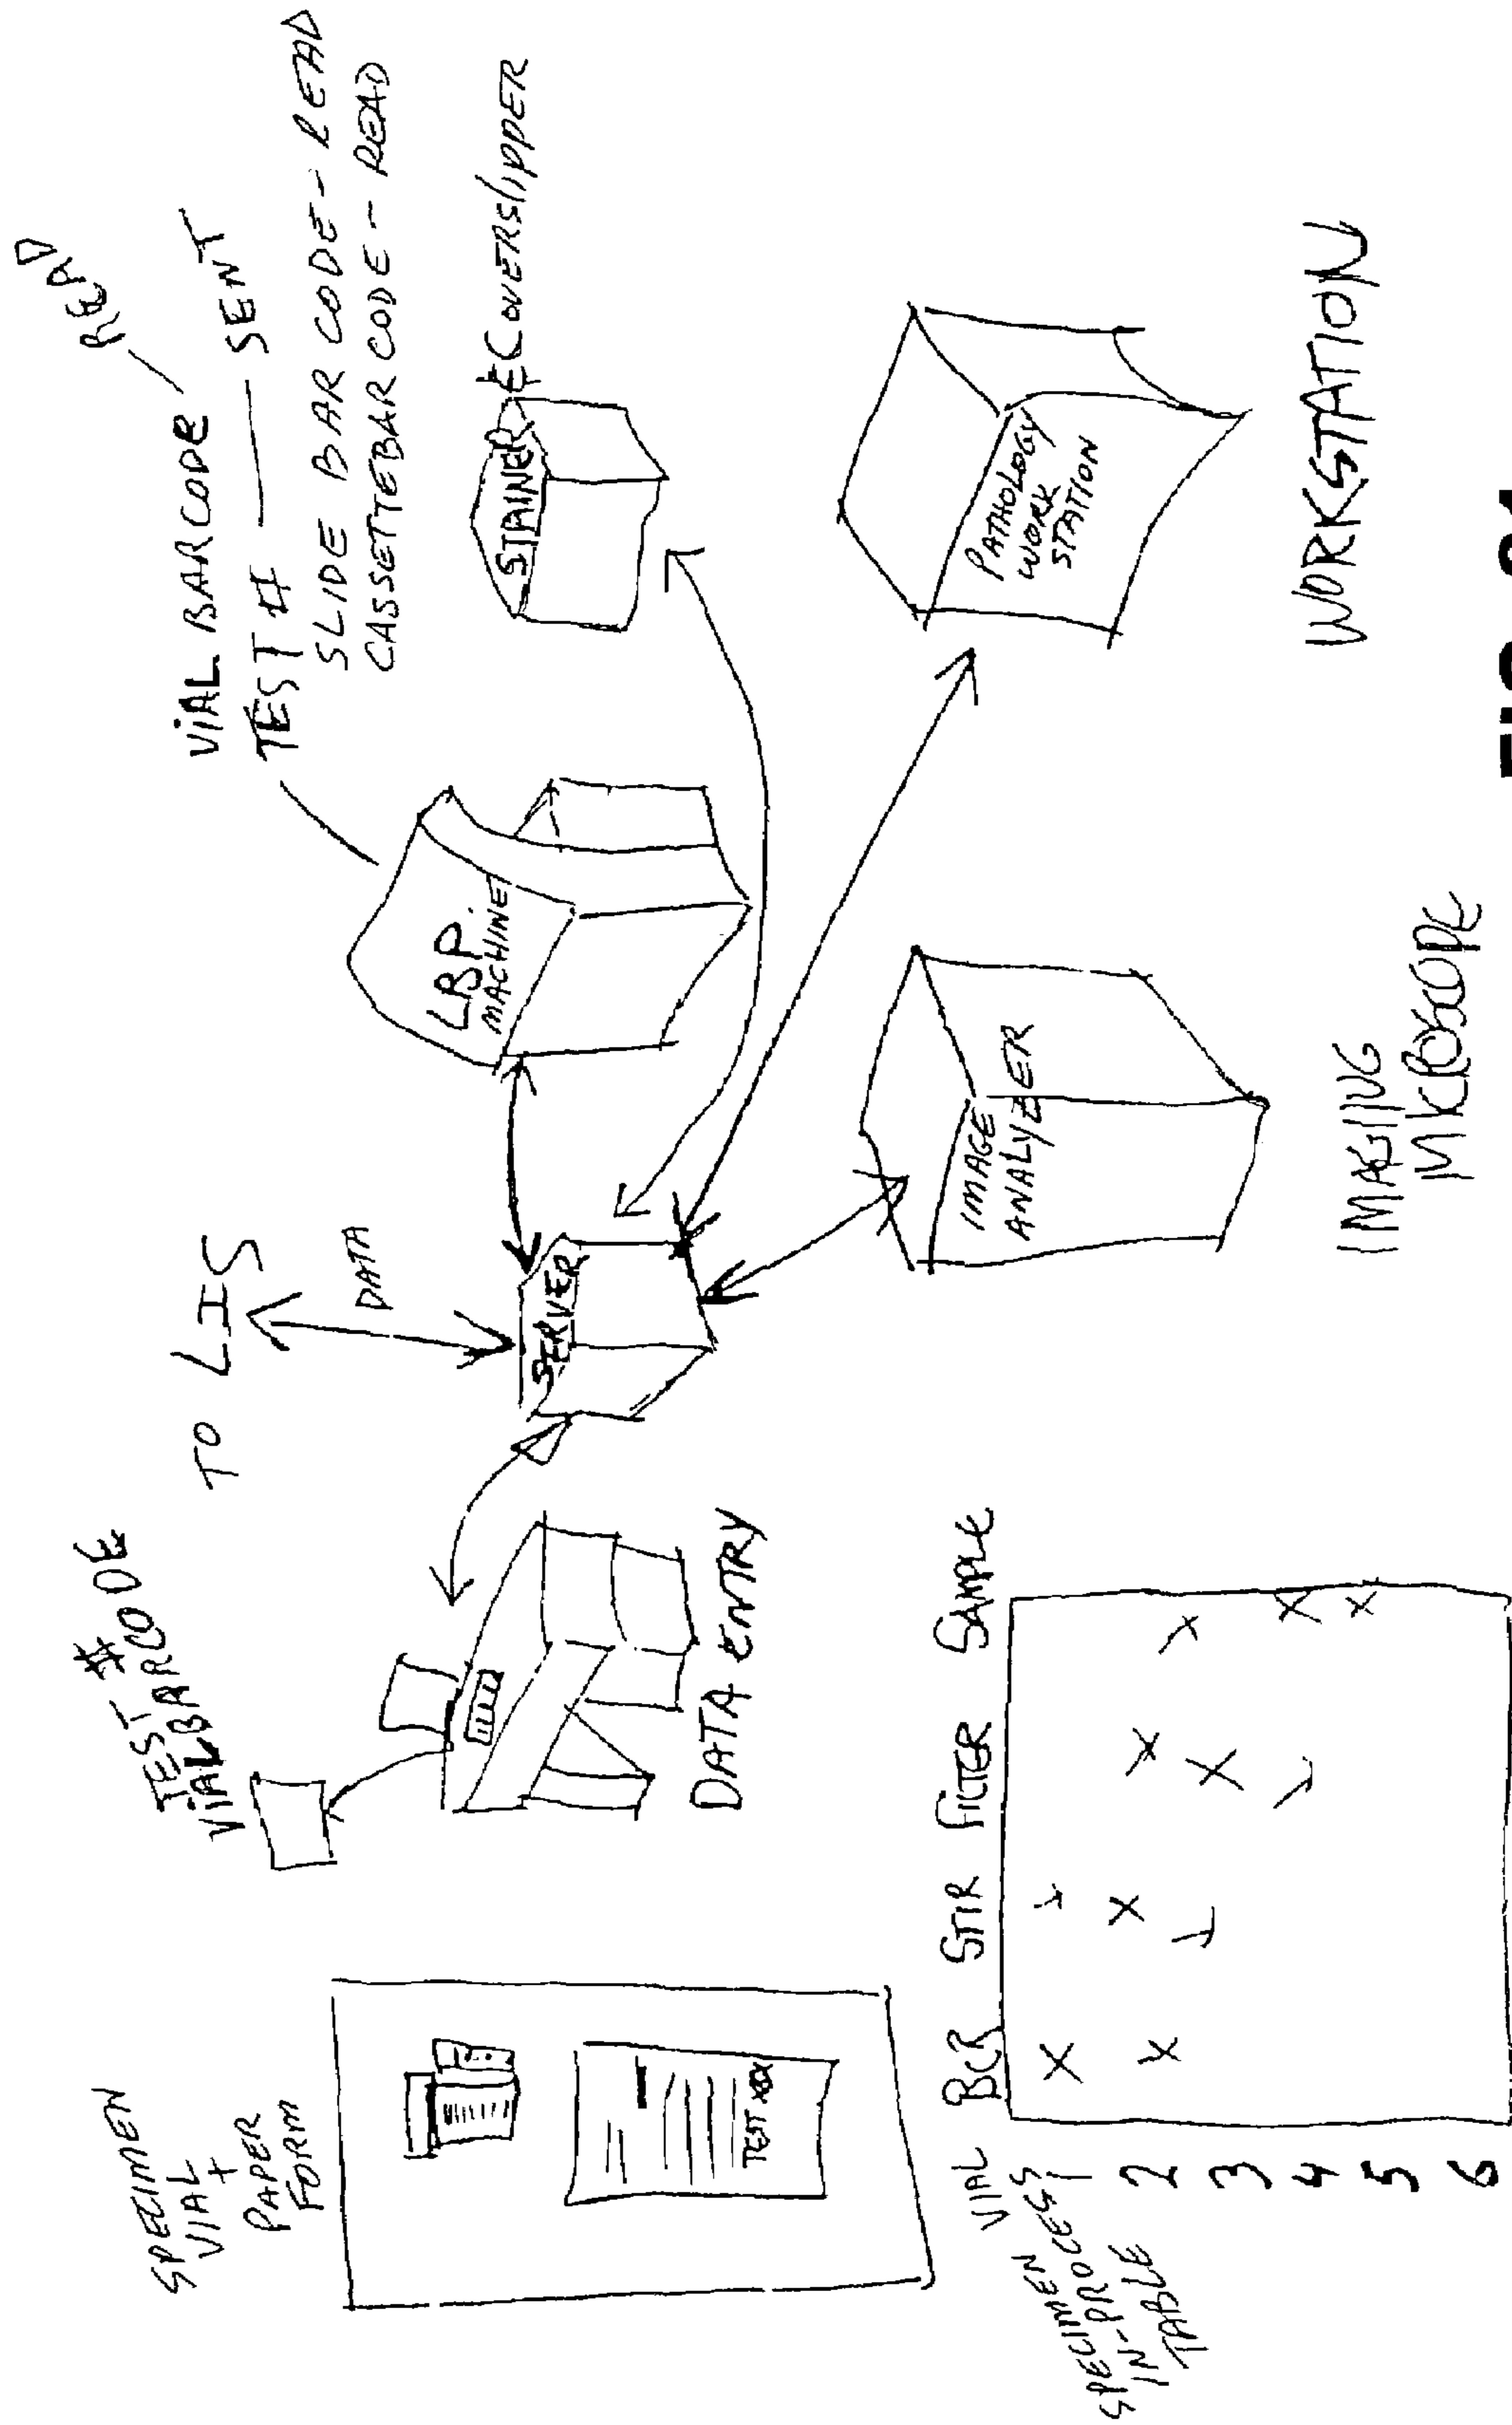 SPECIMEN
VIAL
+
PAPER
FORM
TEST XXX
TEST #
VIAL BARCODE
DATA ENTRY
TO LIS
DATA
SERVER
LBP
MACHINE
VIAL BARCODE — READ
TEST # — SENT
SLIDE BAR CODE - READ
CASSETTE BAR CODE - READ
STAINER & Coverslipper
PATHOLOGY
WORK
STATION
WORKSTATION
IMAGE
ANALYZER
IMAGING
MICROSCOPE
VIAL BCR STIR FILTER SAMPLE
SPECIMEN
IN-PROCESS
TABLE
1 X X
2 X X X
3 X X X
4 X X
5 X
6